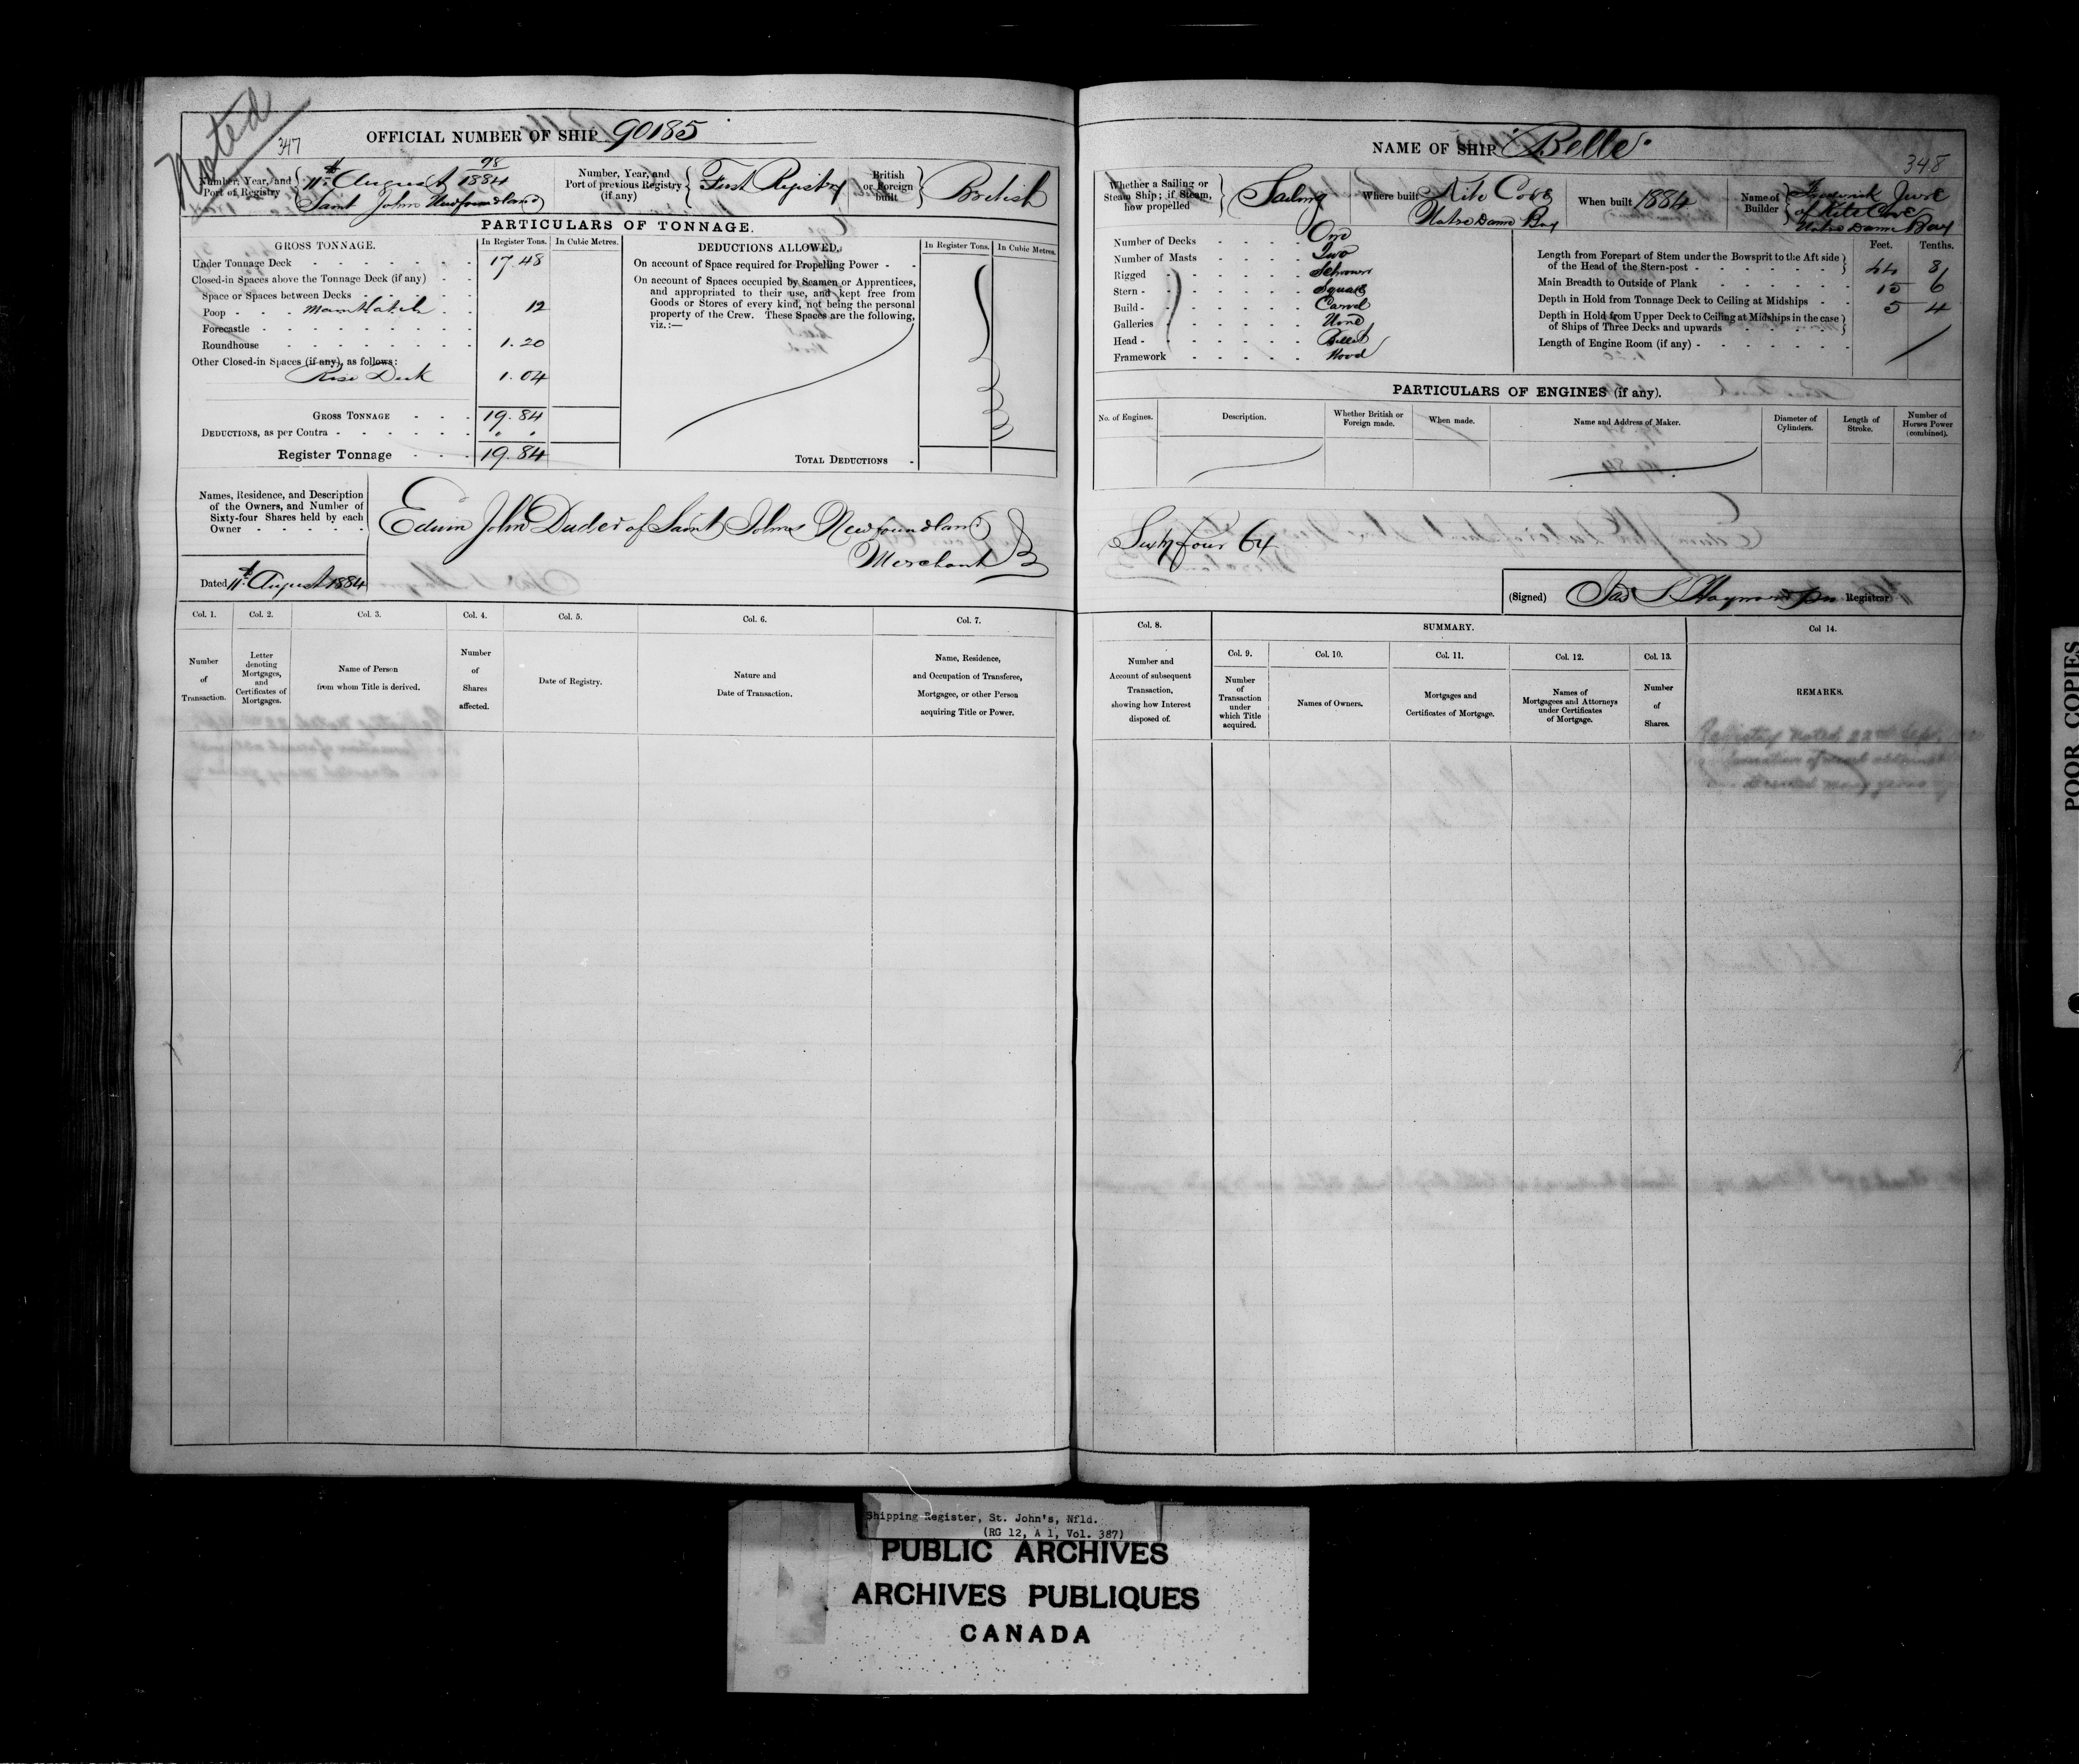 Noted
347
OFFICIAL NUMBER OF SHIP 90185
Number, Year, and Port of Registry
98
11th August 1884
Saint Johns Newfoundland
Number, Year, and Port of previous Registry (if any)
First Registry
British or Foreign built
British
PARTICULARS OF TONNAGE.
GROSS TONNAGE.
In Register Tons.
In Cubic Metres.
Under Tonnage Deck 17.48
Closed-in Spaces above the Tonnage Deck (if any)
Space or Spaces between Decks
Poop Main Hatch 12
Forecastle
Roundhouse 1.20
Other Closed-in Spaces (if any), as follows:
Rise Deck 1.04
GROSS TONNAGE 19.84
DEDUCTIONS, as per Contra
Register Tonnage 19.84
DEDUCTIONS ALLOWED.
In Register Tons.
In Cubic Metres.
On account of Space required for Propelling Power
On account of Spaces occupied by Seamen or Apprentices,
and appropriated to their use, and kept free from
Goods or Stores of every kind, not being the personal
property of the Crew. These Spaces are the following,
viz.:—
TOTAL DEDUCTIONS
Names, Residence, and Description
of the Owners, and Number of
Sixty-four Shares held by each
Owner
Edwin John Duder of Saint Johns Newfoundland
Merchant
Dated 11th August 1884
Col. 1.
Number
of
Transaction.
Col. 2.
Letter
denoting
Mortgages,
and
Certificates of
Mortgages.
Col. 3.
Name of Person
from whom Title is derived.
Col. 4.
Number
of
Shares
affected.
Col. 5.
Date of Registry.
Col. 6.
Nature and
Date of Transaction.
Col. 7.
Name, Residence,
and Occupation of Transferee,
Mortgagee, or other Person
acquiring Title or Power.
NAME OF SHIP "Belle"
348
Whether a Sailing or
Steam Ship; if Steam,
how propelled
Sailing
Where built
Kite Cove
Notre Dame Bay
When built 1884
Name of Builder
Frederick
of Kite Cove
Notre Dame Bay
Number of Decks One
Number of Masts Two
Rigged Schooner
Stern Square
Build Carvel
Galleries None
Head Billet
Framework Wood
Feet. Tenths.
Length from Forepart of Stem under the Bowsprit to the Aft side
of the Head of the Stern-post 44 8
Main Breadth to Outside of Plank 15 6
Depth in Hold from Tonnage Deck to Ceiling at Midships 5 4
Depth in Hold from Upper Deck to Ceiling at Midships in the case
of Ships of Three Decks and upwards
Length of Engine Room (if any)
PARTICULARS OF ENGINES (if any).
No. of Engines.
Description.
Whether British or
Foreign made.
When made.
Name and Address of Maker.
Diameter of
Cylinders.
Length of
Stroke.
Number of
Horses Power
(combined).
Sixty four 64
(Signed) Registrar
Col. 8.
Number and
Account of subsequent
Transaction,
showing how Interest
disposed of.
SUMMARY.
Col. 9.
Number
of
Transaction
under
which Title
acquired.
Col. 10.
Names of Owners.
Col. 11.
Mortgages and
Certificates of Mortgage.
Col. 12.
Names of
Mortgagees and Attorneys
under Certificates
of Mortgage.
Col. 13.
Number
of
Shares.
Col 14.
REMARKS.
Registry noted 22nd Sept
POOR COPIES
Shipping Register, St. John's, Nfld.
(RG 12, A 1, Vol. 387)
PUBLIC ARCHIVES
ARCHIVES PUBLIQUES
CANADA